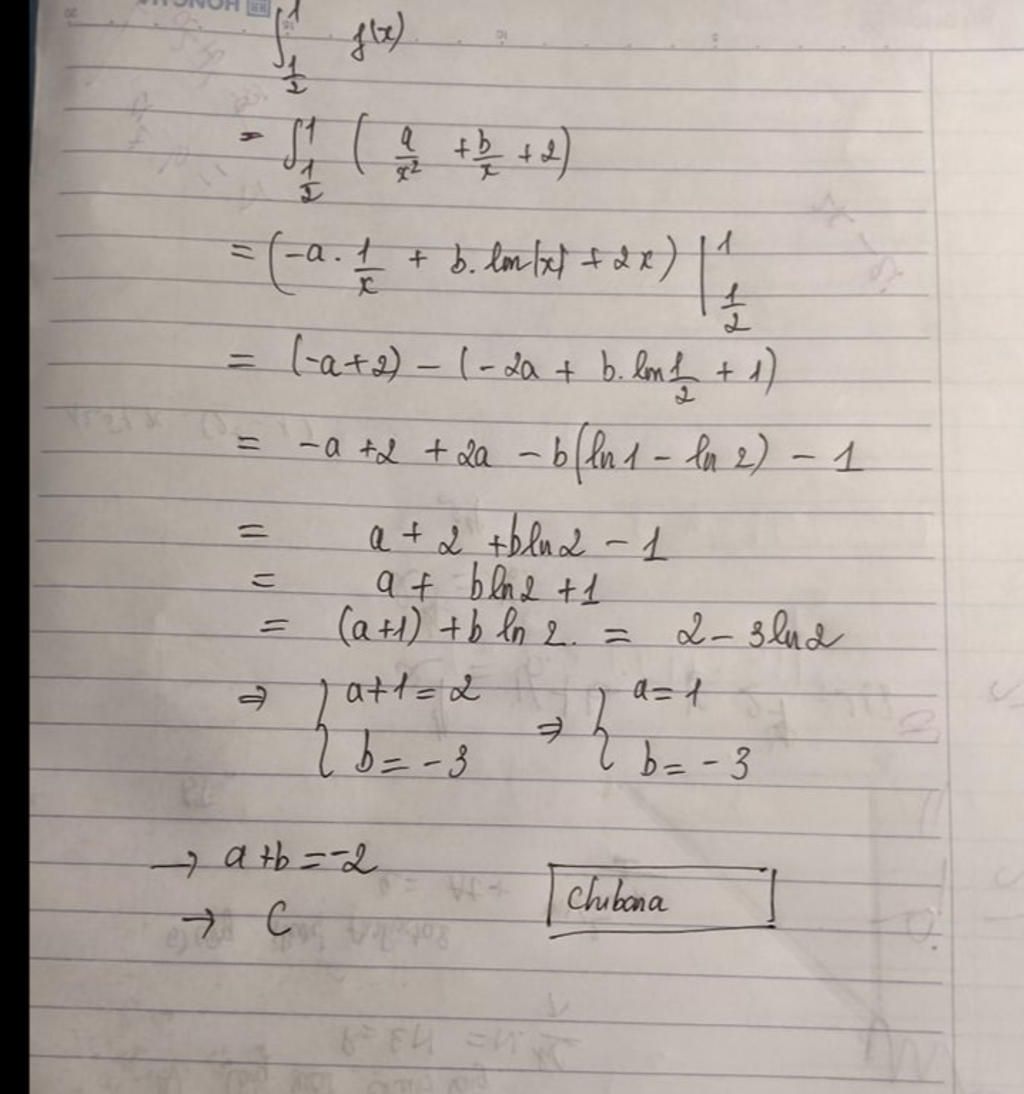 ∫_{1/2}^{1} f(x)
= ∫_{1/2}^{1} ( a/x² + b/x + 2)
= (-a . 1/x + b. ln|x| + 2x) |_{1/2}^{1}
= (-a+2) - (-2a + b. ln 1/2 + 1)
= -a +2 + 2a - b(ln1 - ln 2) - 1
= a + 2 +bln2 - 1
= a + bln2 +1
= (a+1) + b ln 2. = 2 - 3ln2
⇒ { a+1 = 2 ⇒ { a = 1
b = -3 b = -3
→ a+b = -2
→ C
Chubona